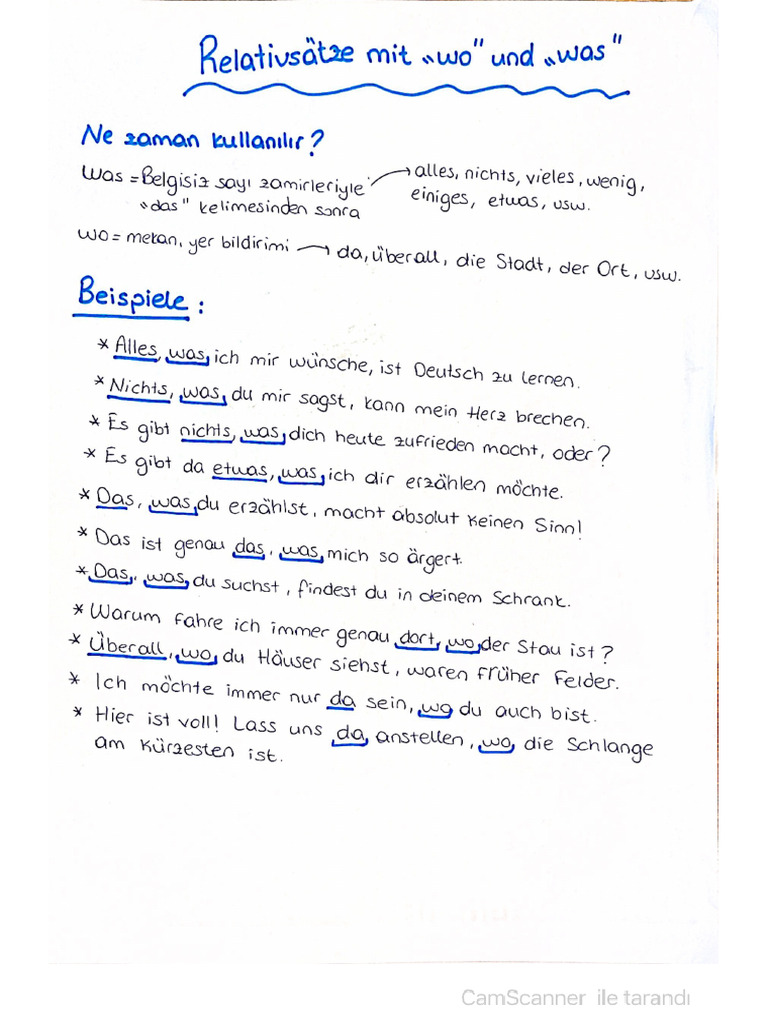 Relativsätze mit „wo" und „was"
Ne zaman kullanılır?
Was = Belgisiz sayı zamirleriyle → alles, nichts, vieles, wenig,
„das" kelimesinden sonra einiges, etwas, usw.
wo = mekan, yer bildirimi → da, überall, die Stadt, der Ort, usw.
Beispiele:
* Alles, was, ich mir wünsche, ist Deutsch zu lernen.
* Nichts, was, du mir sagst, kann mein Herz brechen.
* Es gibt nichts, was, dich heute zufrieden macht, oder?
* Es gibt da etwas, was, ich dir erzählen möchte.
* Das, was, du erzählst, macht absolut keinen Sinn!
* Das ist genau das, was, mich so ärgert.
* Das, was, du suchst, findest du in deinem Schrank.
* Warum fahre ich immer genau dort, wo, der Stau ist?
* Überall, wo, du Häuser siehst, waren früher Felder.
* Ich möchte immer nur da sein, wo du auch bist.
* Hier ist voll! Lass uns da, anstellen, wo, die Schlange
am kürzesten ist.
CamScanner ile tarandı